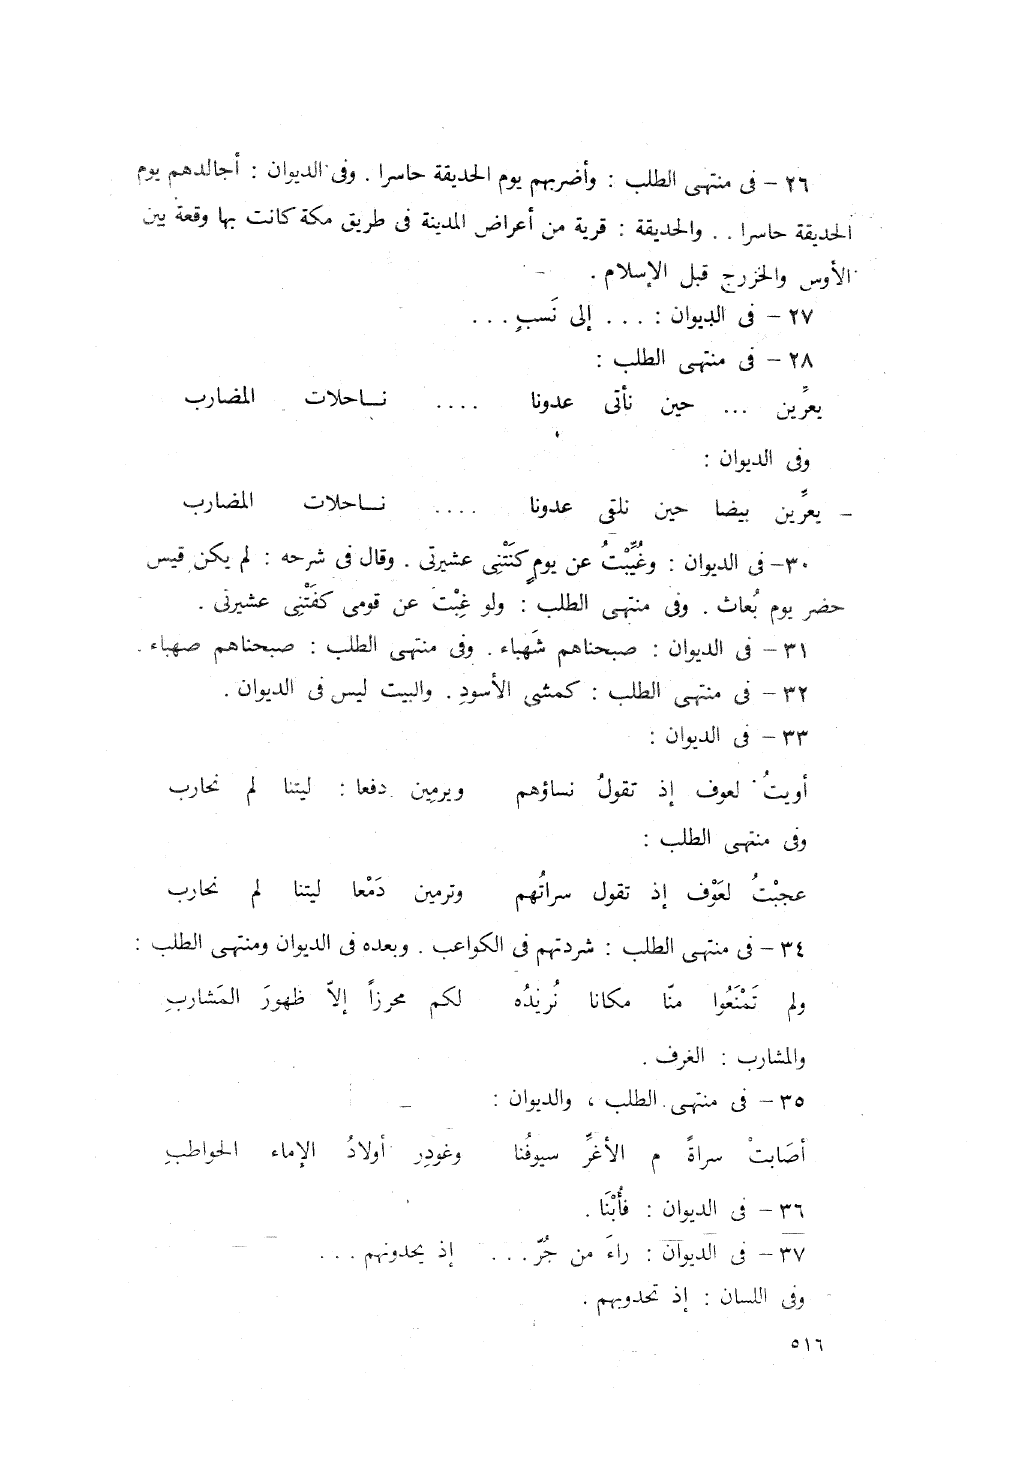 ٢٦ – فى منتهى الطلب : وأضربهم يوم الحديقة حاسرا . وفى الديوان : أجالدهم يوم
الحديقة حاسرا . . والحديقة : قرية من أعراض المدينة فى طريق مكة كانت بها وقعة بين
الأوس والخزرج قبل الإسلام .
٢٧ – فى الديوان : . . . إلى نَسبٍ . . .
٢٨ – فى منتهى الطلب :
يعرِّين ... حين نأتى عدونا .... ناحلات المضارب
وفى الديوان :
– يعرِّين بيضا حين نلقى عدونا .... ناحلات المضارب
٣٠– فى الديوان : وغُيِّبْتُ عن يومٍ كنَتْنِى عشيرتى . وقال فى شرحه : لم يكن قيس
حضر يوم بُعاث . وفى منتهى الطلب : ولو غِبْت عن قومى كفَتْنِى عشيرتى .
٣١ – فى الديوان : صبحناهم شَهباء . وفى منتهى الطلب : صبحناهم صهباء .
٣٢ – فى منتهى الطلب : كمشى الأسودِ . والبيت ليس فى الديوان .
٣٣ – فى الديوان :
أويتُ لعوف إذ تقولُ نساؤهم ويرمِين دفعا : ليتنا لم نحارب
وفى منتهى الطلب :
عجبْتُ لعَوْف إذ تقول سراتُهم وترمين دَمْعا ليتنا لم نحارب
٣٤ – فى منتهى الطلب : شردتهم فى الكواعب . وبعده فى الديوان ومنتهى الطلب :
ولم تَمْنَعُوا منّا مكانا نُريدُه لكم محرزاً إلاّ ظهورَ المَشاربِ
والمشارب : الغرف .
٣٥ – فى منتهى الطلب ، والديوان :
أصَابتْ سراةً م الأغرِّ سيوفُنا وغودِر أولادُ الإماء الحواطبِ
٣٦ – فى الديوان : فأُبْنَا .
٣٧ – فى الديوان : راءَ من جُرّ . . . إذ يحدونهم . . .
وفى اللسان : إذ تحدوبهم .
٥١٦